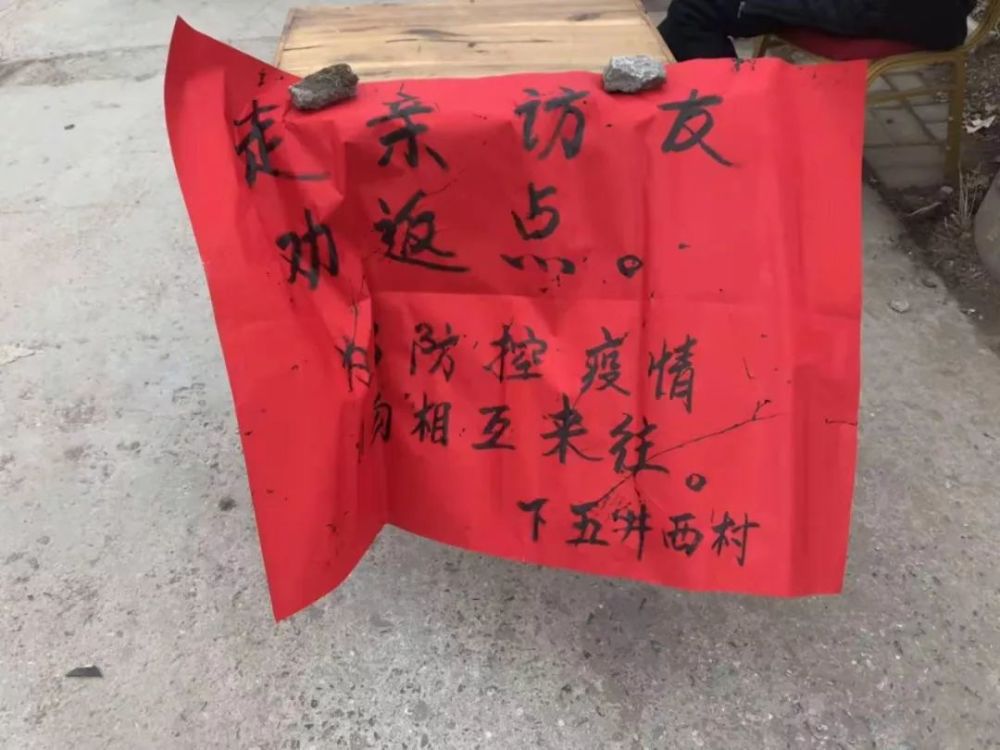 走亲访友
劝返点。
防控疫情
勿相互来往。
下五井西村